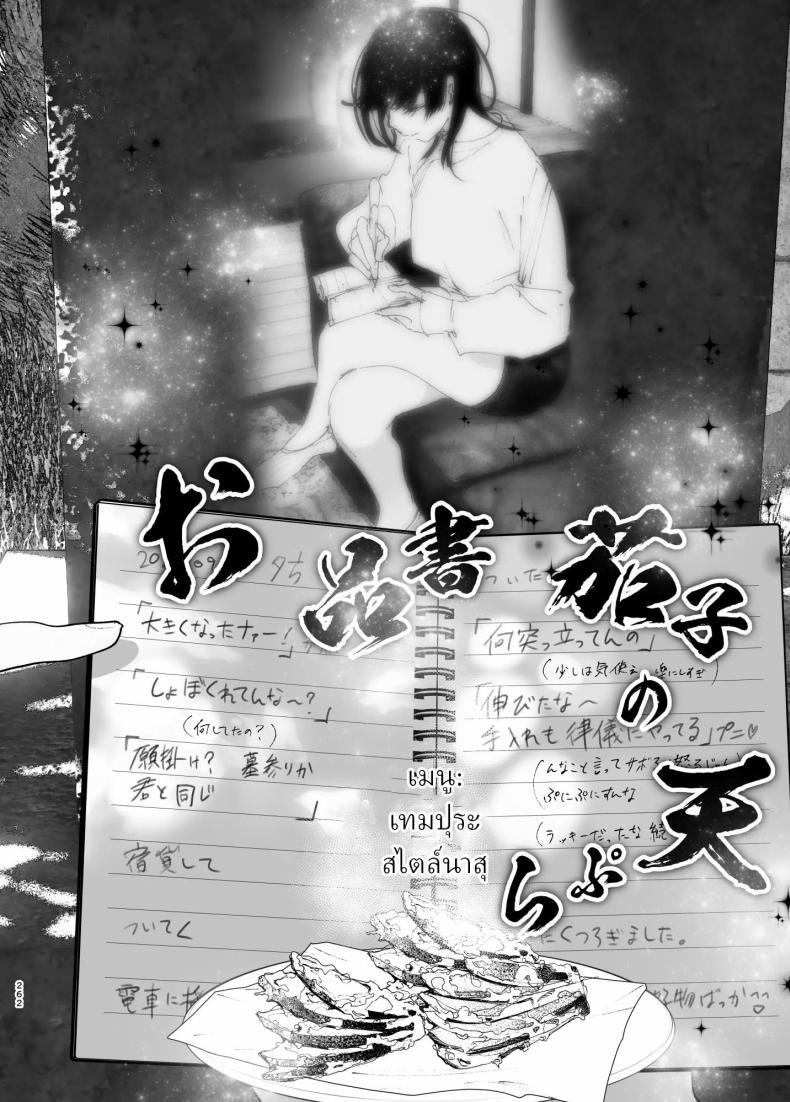 お品書
茄子の天ぷら
เมนู:
เทมปุระ
สไตล์นาสุ
「大きくなったナァー！」
「しょぼくれてんな〜？」
（何してたの？）
「願掛け？ 墓参りか
君と同じ
」
宿貸して
ついてく
電車に
ついた
「何突っ立ってんの」
（少しは気使え 楽にしすぎ）
「伸びたな〜
手入れも律儀にやってる」プニ♡
（んなこと言ってサボ
ぷにぷにすんな
（ラッキーだったな
たくつろぎました。
物ばっか
262